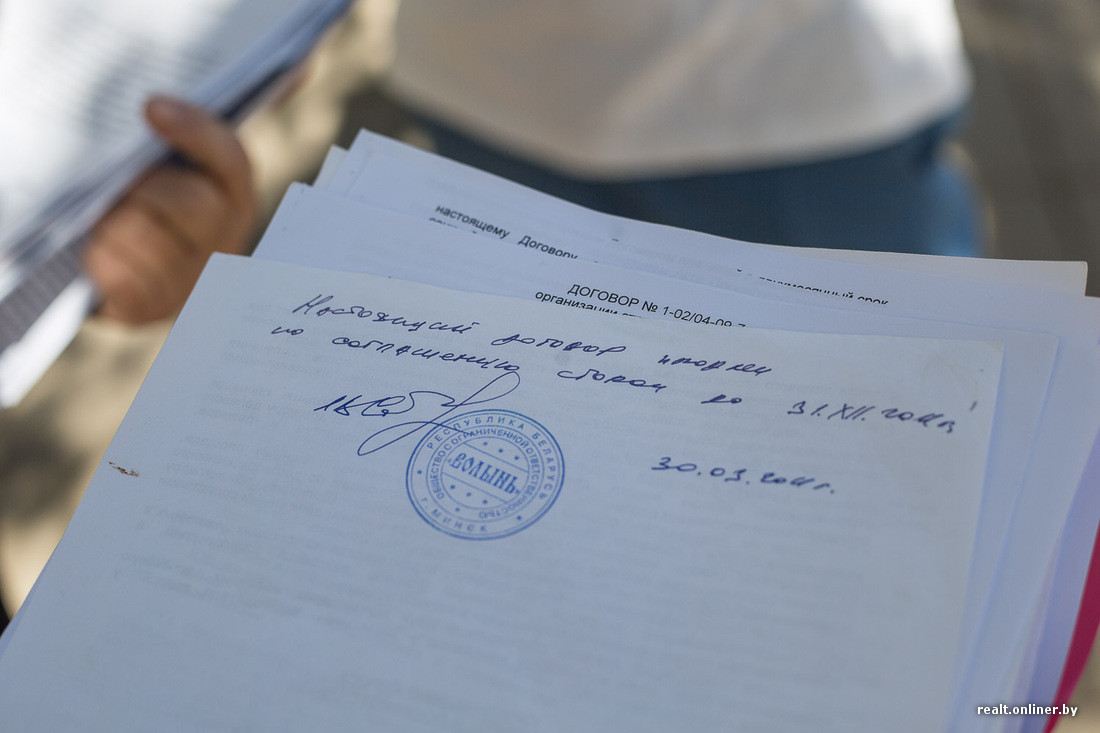 настоящему Договору
ДОГОВОР № 1-02/04-09-
организации
срок
Настоящий договор
по соглашению сторон до 31.XII.2011г.
РЕСПУБЛИКА БЕЛАРУСЬ
ОБЩЕСТВО С ОГРАНИЧЕННОЙ ОТВЕТСТВЕННОСТЬЮ
"ВОЛЫНЬ"
Г. МИНСК
30.03.2011г.
realt.onliner.by